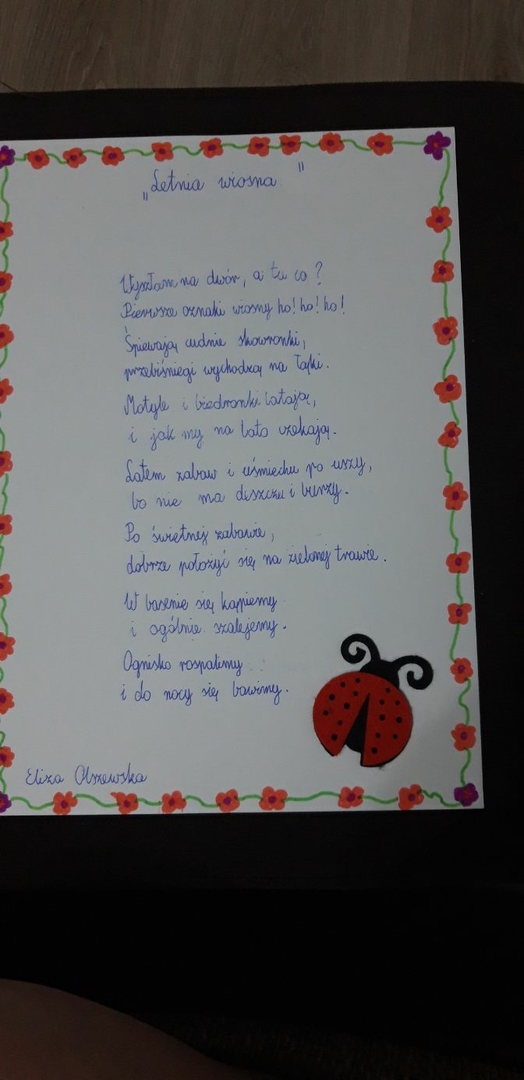 „Letnia wiosna"
Wyszłam na dwór, a tu co?
Pierwsze oznaki wiosny ho! ho! ho!
Śpiewają cudnie skowronki,
przebiśniegi wychodzą na łąki.
Motyle i biedronki latają,
i jak my na lato czekają.
Latem zabaw i uśmiechu po uszy,
bo nie ma deszczu i burzy.
Po świetnej zabawie,
dobrze położyć się na zielonej trawie.
W basenie się kąpiemy
i ogólnie szalejemy.
Ognisko rozpalimy
i do nocy się bawimy.
Eliza Olszewska